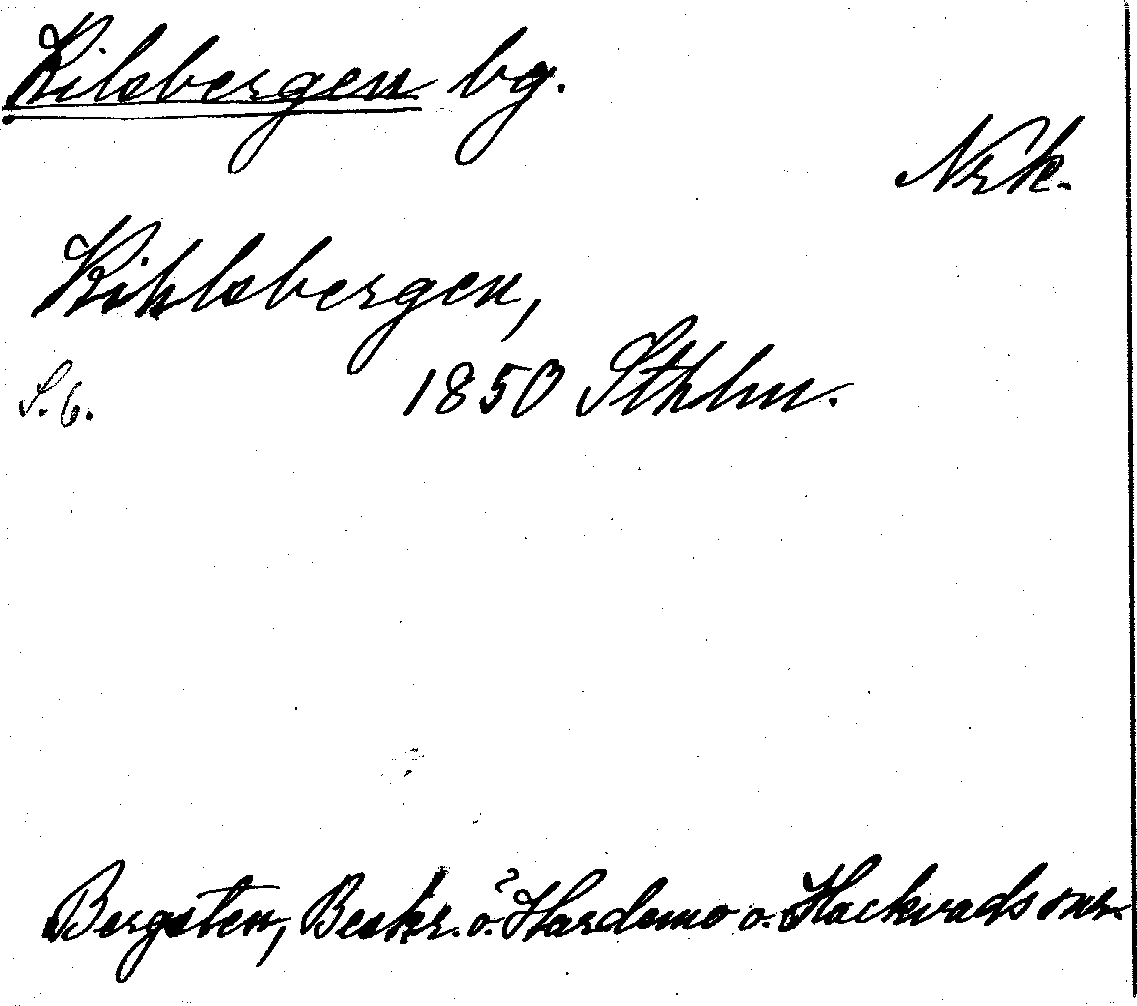 Kilsbergen bg.
Nrk.
Kihlsbergen,
S. 6. 1850 Sthlm.
Bergsten, Beskr. ö. Hardemo o. Hackvads snr.